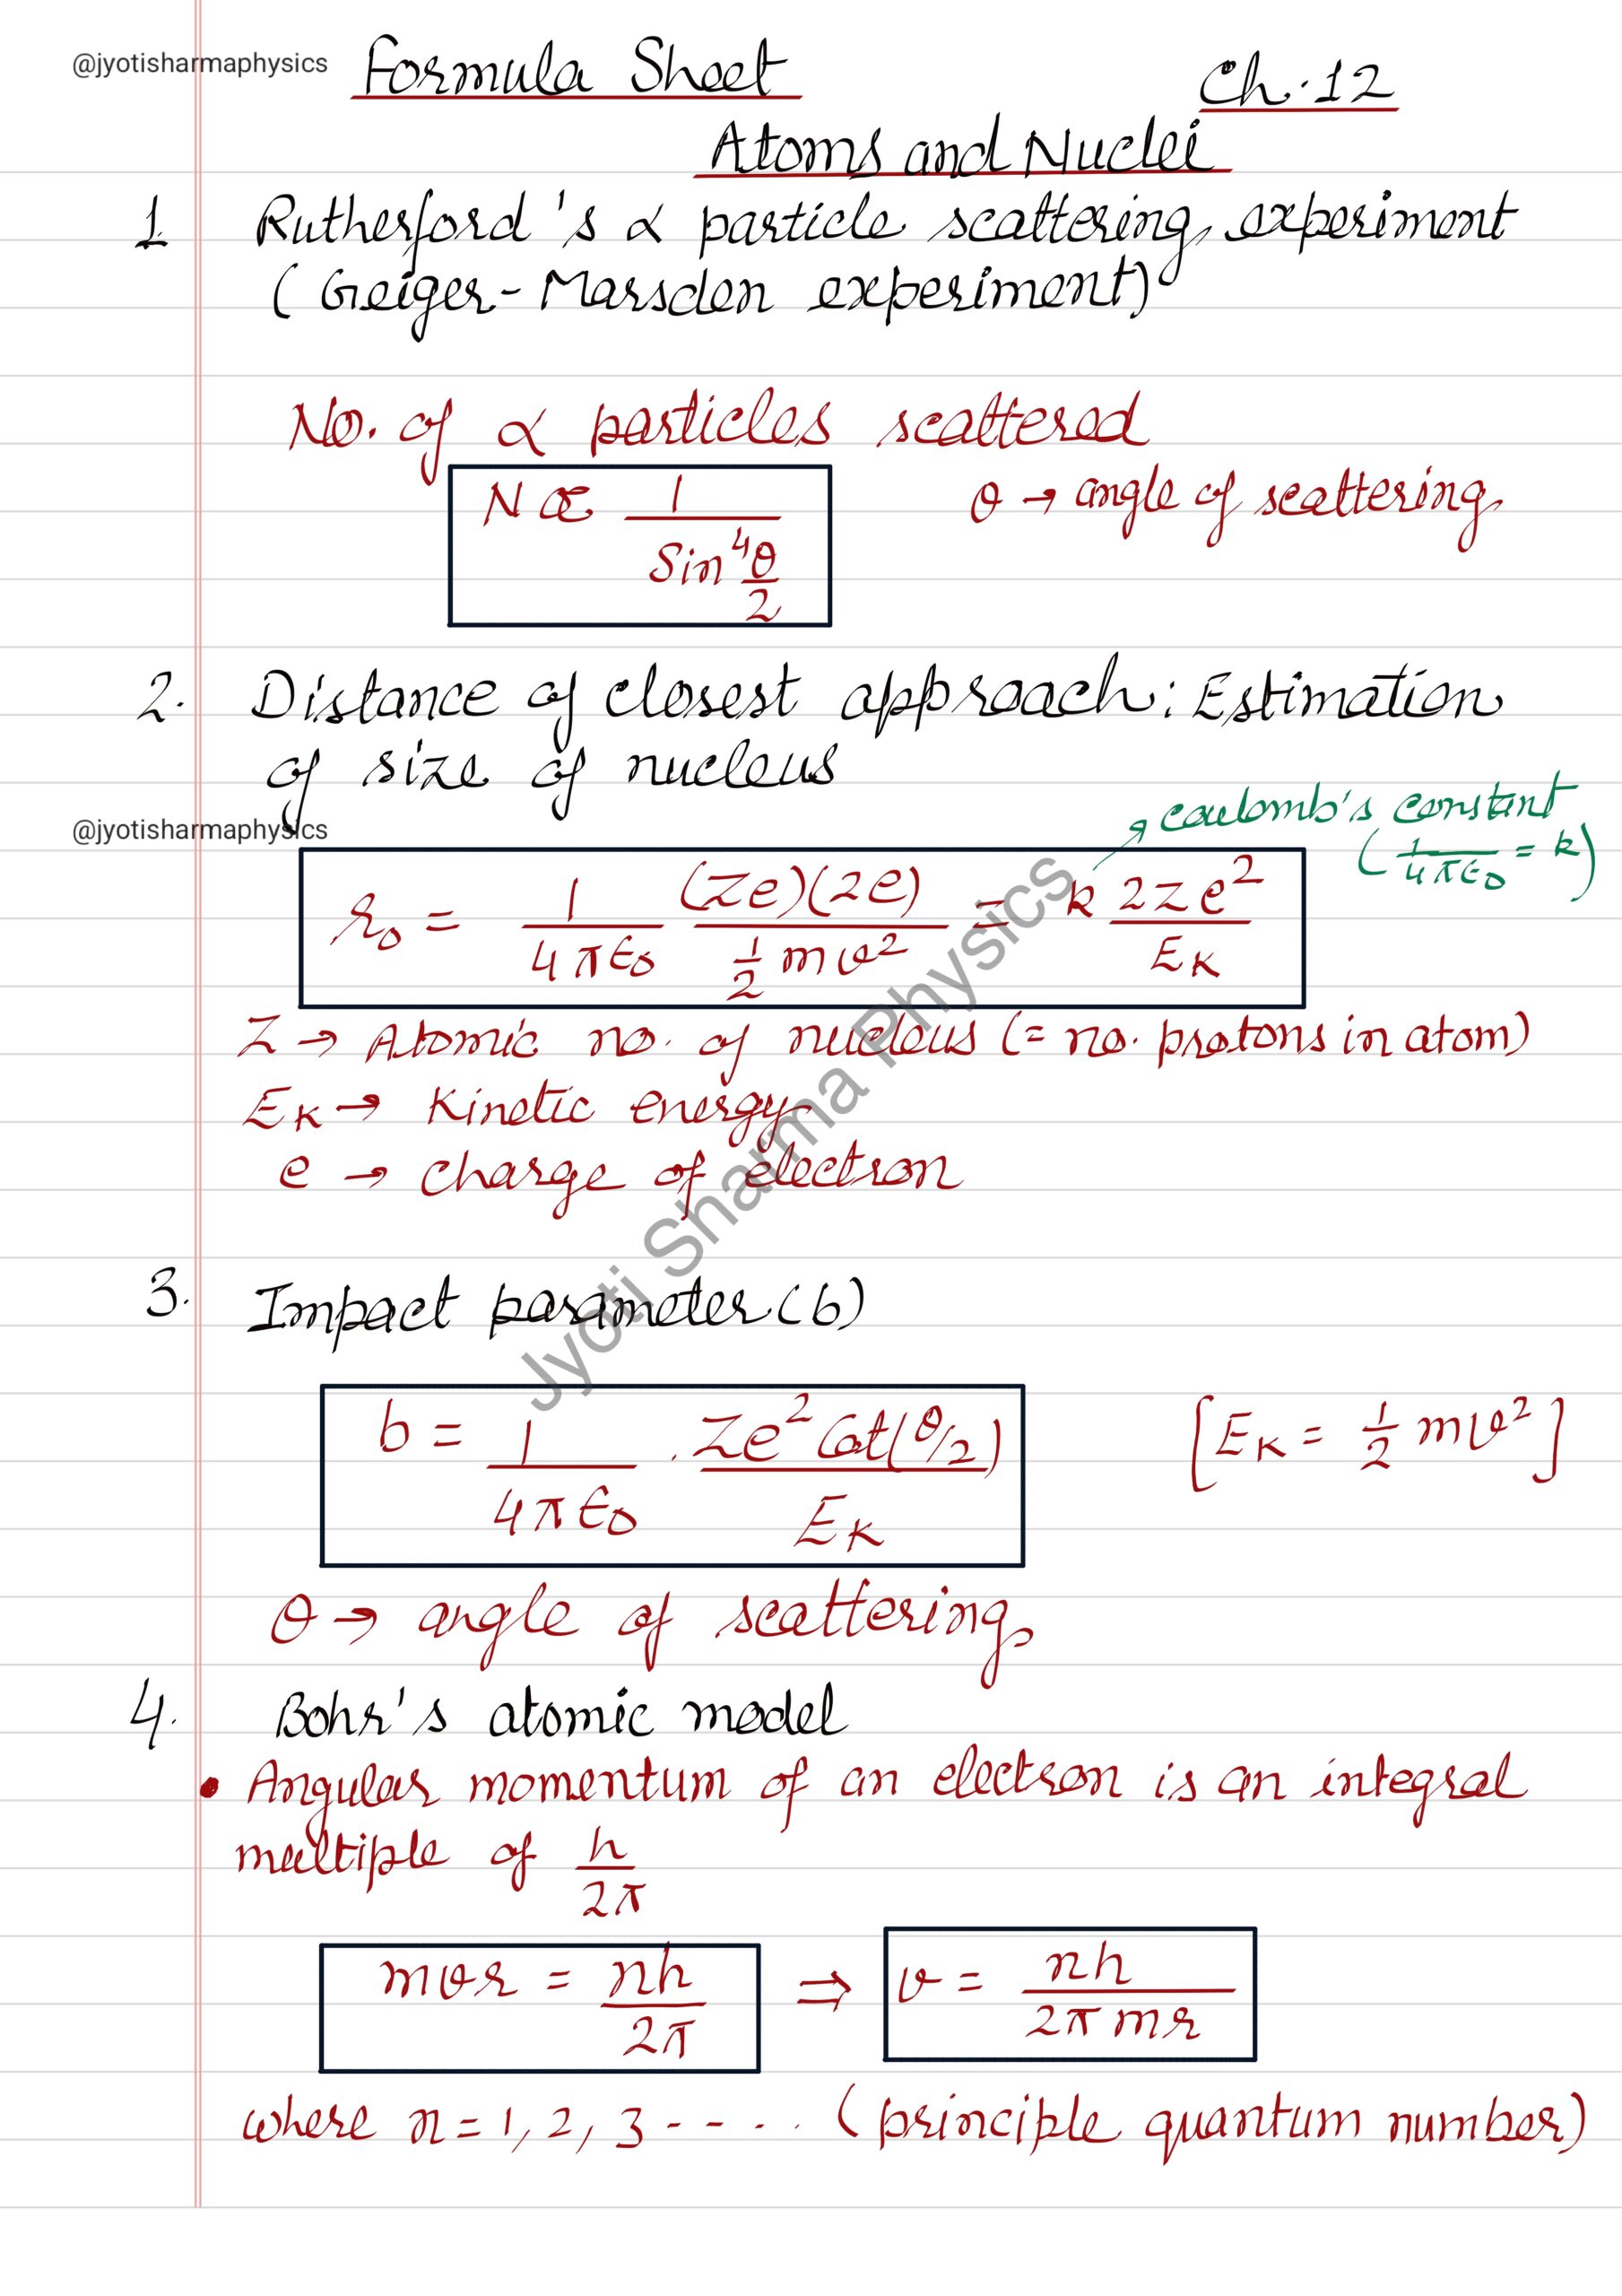 @jyotisharmaphysics Formula Sheet Ch. 12
Atoms and Nuclei
1 Rutherford's α particle scattering experiment
(Geiger-Marsden experiment)
No. of α particles scattered
N ∝ 1 / Sin⁴ θ/2 θ → angle of scattering
2. Distance of closest approach: Estimation
of size of nucleus
@jyotisharmaphysics
coulomb's constant
(1/4πε₀ = k)
r₀ = 1/4πε₀ (Ze)(2e) / ½ mv² = k 2Ze² / E_K
Z → Atomic no. of nucleus (= no. protons in atom)
E_K → Kinetic energy
e → charge of electron
Jyoti Sharma Physics
3. Impact parameter (b)
b = 1/4πε₀ . Ze² Cot(θ/2) / E_K [E_K = ½ mv²]
θ → angle of scattering
4. Bohr's atomic model
• Angular momentum of an electron is an integral
multiple of h/2π
mvr = nh/2π ⇒ v = nh/2πmr
where n = 1, 2, 3 - - - . . (principle quantum number)